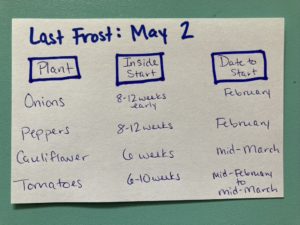 Last Frost: May 2
Plant Inside Start Date to Start
Onions 8-12 weeks early February
Peppers 8-12 weeks February
Cauliflower 6 weeks mid-March
Tomatoes 6-10 weeks mid-February to mid-March